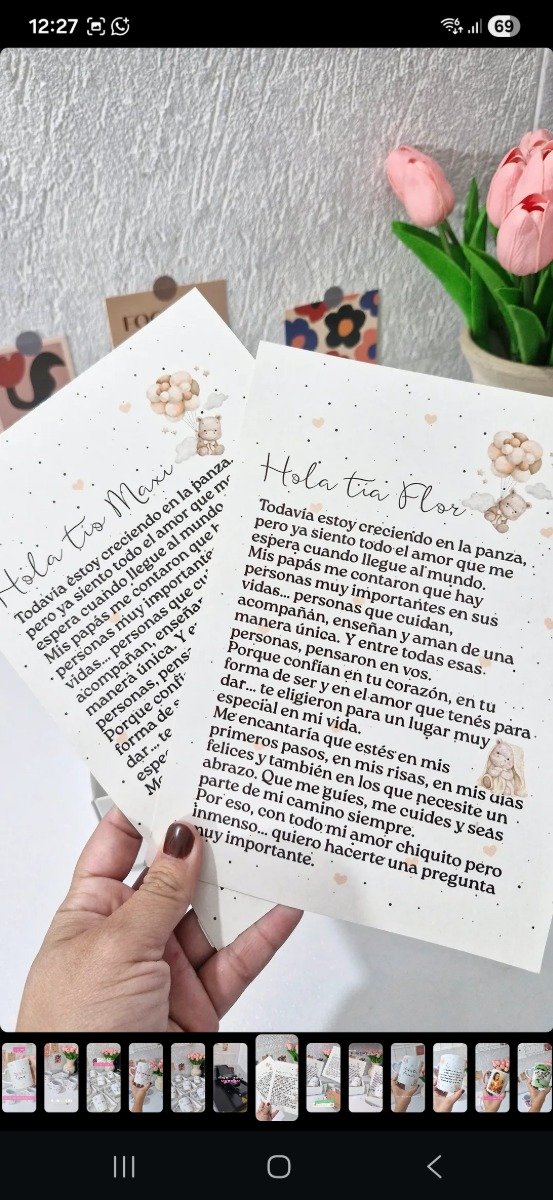 12:27
69
FOC
Hola tío Maxi
Todavía estoy creciendo en la panza,
pero ya siento todo el amor que me
espera cuando llegue al mundo.
Mis papás me contaron que h
personas muy importante
vidas... personas que cu
acompañan, enseña
manera única. Y e
personas, pens
Porque confí
forma de s
dar... te
espe
Me
Hola tía Flor
Todavía estoy creciendo en la panza,
pero ya siento todo el amor que me
espera cuando llegue al mundo.
Mis papás me contaron que hay
personas muy importantes en sus
vidas... personas que cuidan,
acompañan, enseñan y aman de una
manera única. Y entre todas esas
personas, pensaron en vos.
Porque confían en tu corazón, en tu
forma de ser y en el amor que tenés para
dar... te eligieron para un lugar muy
especial en mi vida.
Me encantaría que estés en mis
primeros pasos, en mis risas, en mis días
felices y también en los que necesite un
abrazo. Que me guíes, me cuides y seas
parte de mi camino siempre.
Por eso, con todo mi amor chiquito pero
inmenso... quiero hacerte una pregunta
muy importante.